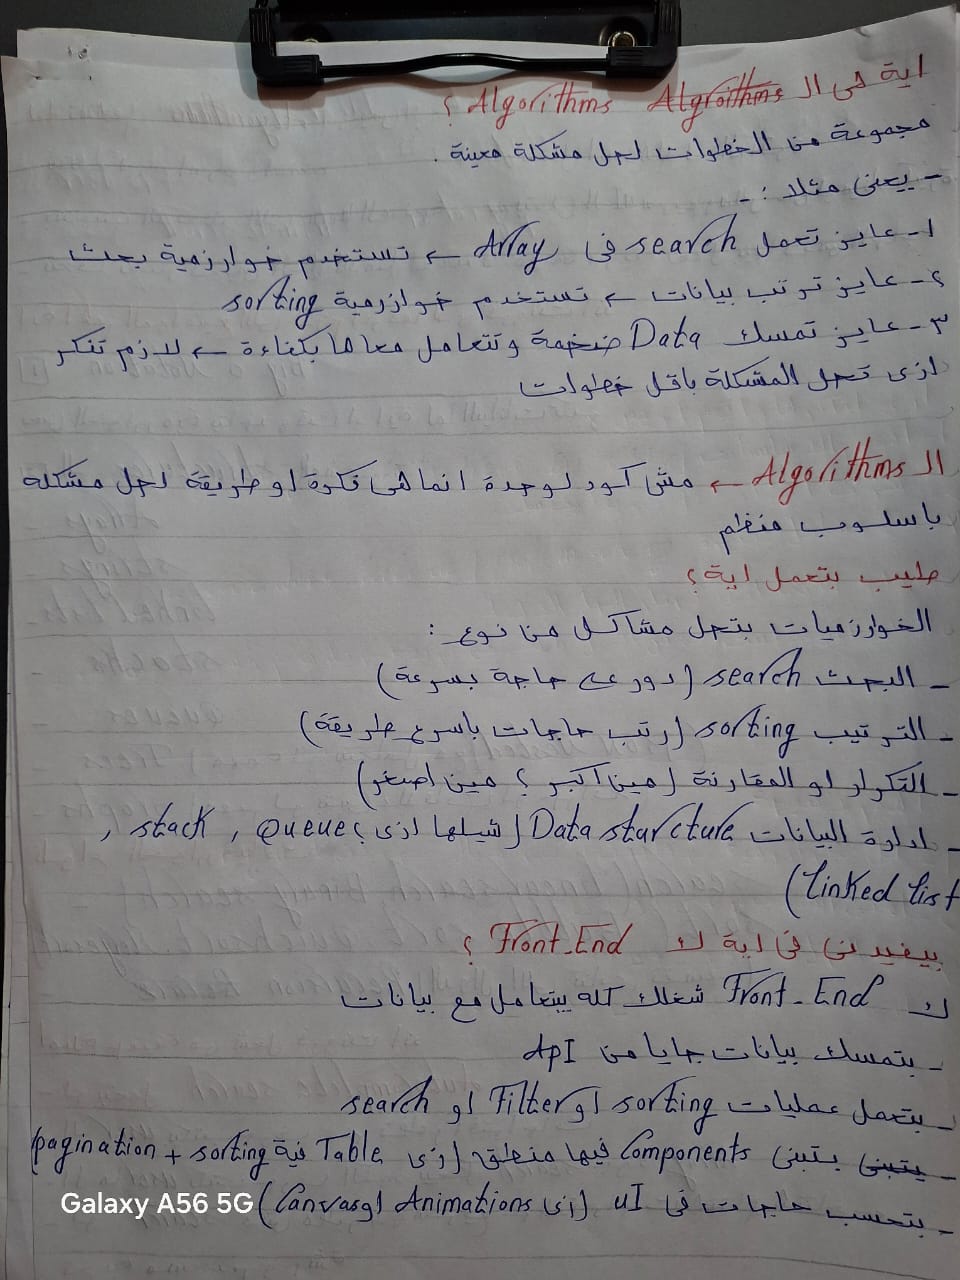 اية هى ال Algroithms Algorithms ؟
مجموعة من الخطوات لحل مشكلة معينة .
- يعنى مثلا : -
١- عايز تعمل search فى Array ← تستخدم خوارزمية بحث
٢- عايز ترتب بيانات ← تستخدم خوازرمية sorting
٣- عايز تمسك Data ضخمة وتتعامل معاها بكفاءة ← لازم تفكر
ازى تحل المشكلة باقل خطوات
ال Algorithms ← مش كود لوحدة انما هى فكرة او طريقة لحل مشكله
باسلوب منظم
طيب بتعمل اية ؟
الخوارزميات بتحل مشاكل من نوع :
- البحث search (دور على حاجة بسرعة)
- الترتيب sorting (رتب حاجات باسرع طريقة)
- التكرار او المقارنة (مين اكبر ؟ مين اصغر)
- ادارة البيانات Data starcture (شيلها ازى ؟ Queue , stack ,
Linked list)
بيفيدنى فى اية ك Front-End ؟
ك Front-End شغلك كله بيتعامل مع بيانات
- بتمسك بيانات جايا من ApI
- بتعمل عمليات sorting او Filter او search
- يتبنى بتبنى Components فيها منطق (زى Table فية sorting + pagination
- بتحسب حاجات فى uI (زى Animations او Canvas)
Galaxy A56 5G